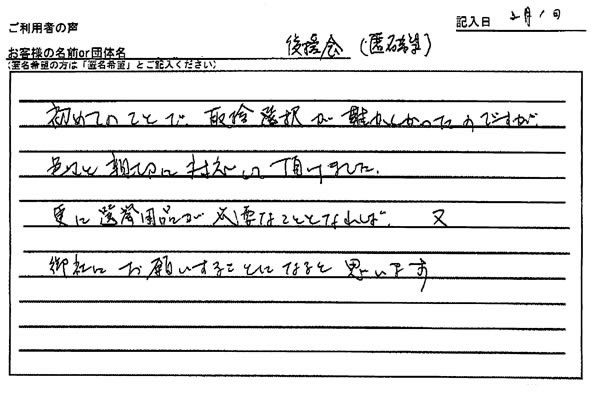 ご利用者の声
記入日 2月1日
お客様の名前or団体名 後援会(匿名希望)
(匿名希望の方は「匿名希望」とご記入ください)
初めてのことで、取捨選択が難しかったのですが、
色々と親切に対応して頂けました。
更に選挙用品が必要なこととなれば、又
御社にお願いすることになると思います